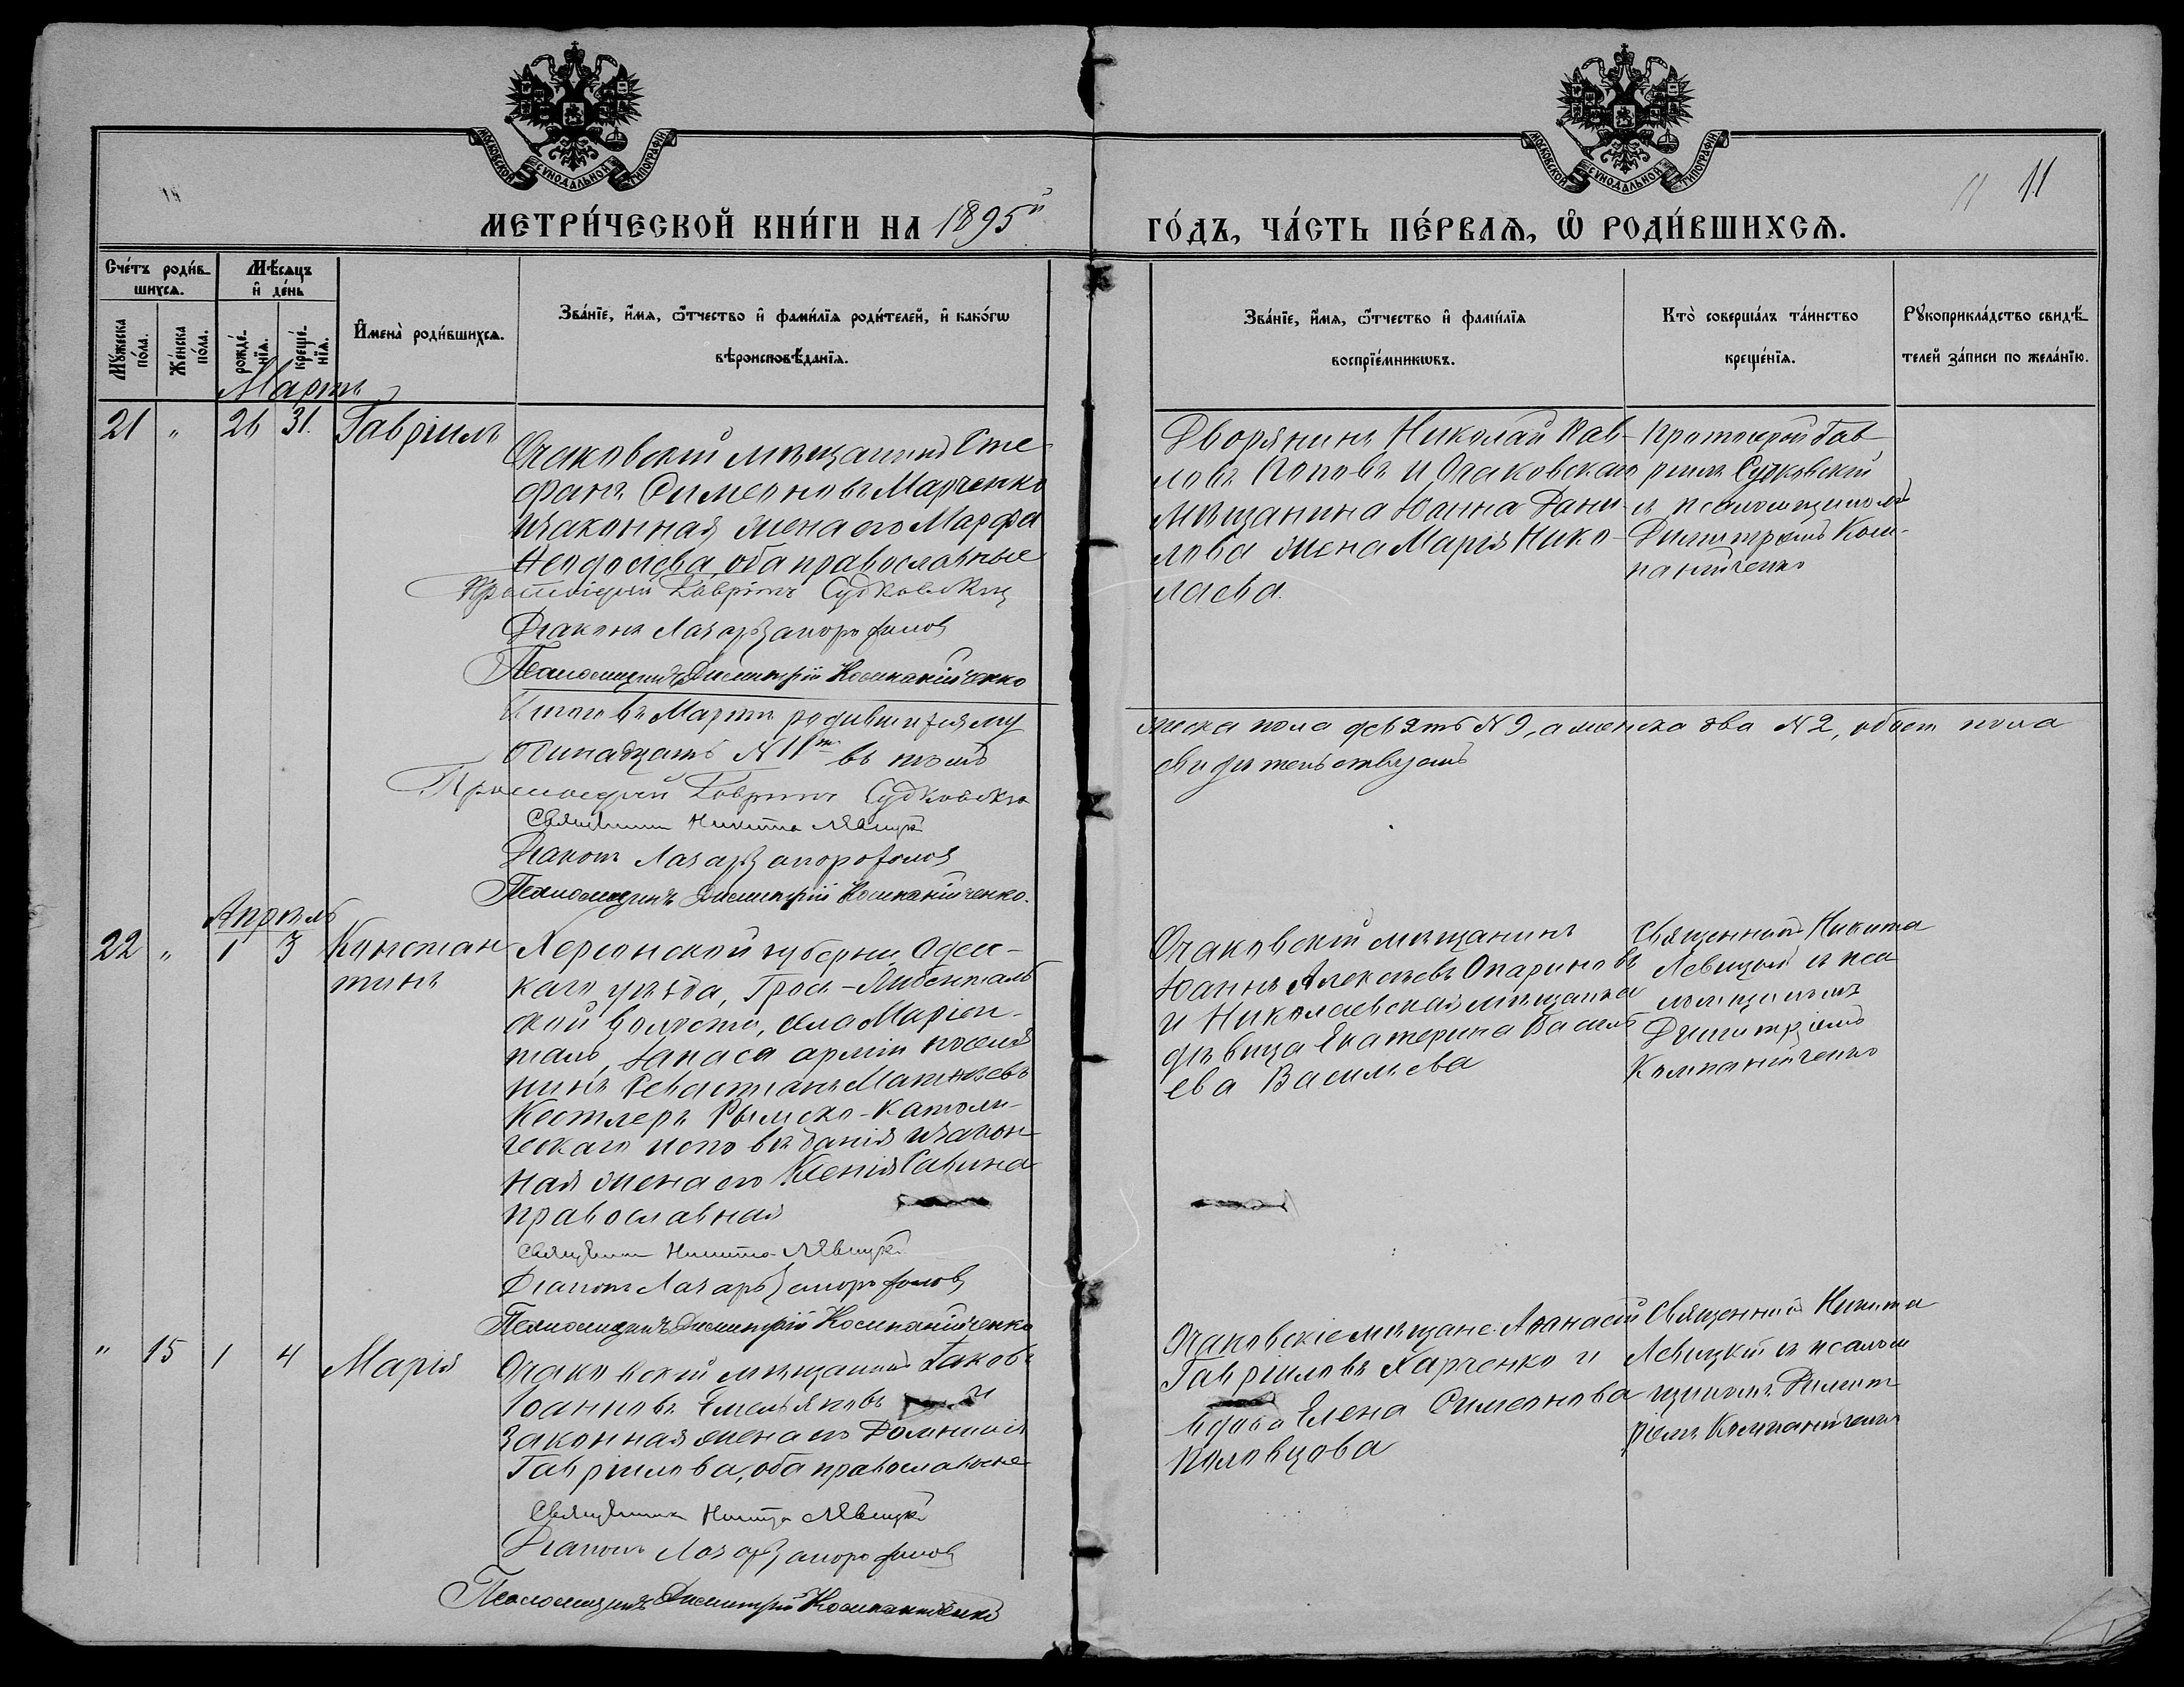 МОСКОВСКОЙ СУНОДАЛЬНОЙ ТИПОГРАФІИ
МОСКОВСКОЙ СУНОДАЛЬНОЙ ТИПОГРАФІИ
11 11
МЕТРИ́ЧЕСКОЙ КНИ́ГИ НА 1895й
ГО́ДЪ, ЧА́СТЬ ПЕ́РВАѦ, Ѡ҆ РОДИ́ВШИХСѦ.
Счетъ роди́в-
шихсѧ.
Мѣсѧцъ
и҆ де́нь
Мꙋ́жеска по́ла.
Же́нска по́ла.
рожде́-нїѧ.
креще́-нїѧ.
И҆мена̀ роди́вшихсѧ.
Зва́нїе, и҆́мѧ, ѻ҆́тчество и҆ фами́лїѧ роди́телей, и҆ како́гѡ
вѣроисповѣ́данїѧ.
Зва́нїе, и҆́мѧ, ѻ҆́тчество и҆ фами́лїѧ
воспрїе́мникѡвъ.
Кто̀ соверша́лъ та́инство
креще́нїѧ.
Рꙋкоприкла́дство свидѣ́-
телей за́писи по жела́нїю.
Мартъ
21 " 26 31. Гавріилъ
Очаковскій мѣщанинъ Сте-
фанъ Симеоновъ Марченко
и законная жена его Марфа
Ѳеодосіева, оба православные
Протоіерей Гавріилъ Судковскій
Діаконъ Лазарь Запорофимов
Псаломщикъ Димитрій Компанійченко
Дворянинъ Николай Пав-
ловъ Поповъ и Очаковскаго
мѣщанина Іоанна Дани-
лова жена Марія Нико-
лаева.
Протоіерей Гав-
ріилъ Судковскій
и псаломщикомъ
Димитріемъ Ком-
панійченко
Итого въ Мартѣ родившихся му
жска пола девять №9, а женска два №2, обоего пола
одинадцать №11ть въ томъ
свидѣтельствуемъ
Протоіерей Гавріилъ Судковскій
Священникъ Никита Левицкій
Діаконъ Лазарь Запорофимов
Псаломщикъ Димитрій Компанійченко.
Апрѣль
22 " 1 3 Констан
тинъ
Херсонской губерніи Одес-
каго уѣзда, Грос-Либенталь
ской волости, села Маріен-
таль, запаса арміи поселя
нинъ Севастіанъ Матѳѣевъ
Кестлеръ Римско-Католи-
ческаго исповѣданія и закон
ная жена его Ксенія Савина
православная
Священникъ Никита Левицкій
Діаконъ Лазарь Запорофимов
Псаломщикъ Димитрій Компанійченко
Очаковскій мѣщанинъ
Іоаннъ Алексѣевъ Опариновъ
и Николаевская мѣщанка
дѣвица Екатерина Василь
ева Васильева
Священникъ Никита
Левицкій и пса
ломщикомъ
Димитріемъ
Компанійченко
" 15 1 4 Марія
Очаковскій мѣщанинъ Іаковъ
Іоанновъ Емельяновъ и
законная жена его Домникія
Гавріилова, оба православные
Священникъ Никита Левицкій
Діаконъ Лазарь Запорофимов
Псаломщикъ Димитрій Компанійченко
Очаковскіе мѣщане: Аѳанасій
Гавріиловъ Харченко и
вдова Елена Симеонова
Половцова
Священникъ Никита
Левицкій и псалом
щикомъ Димит
ріемъ Компанійченко